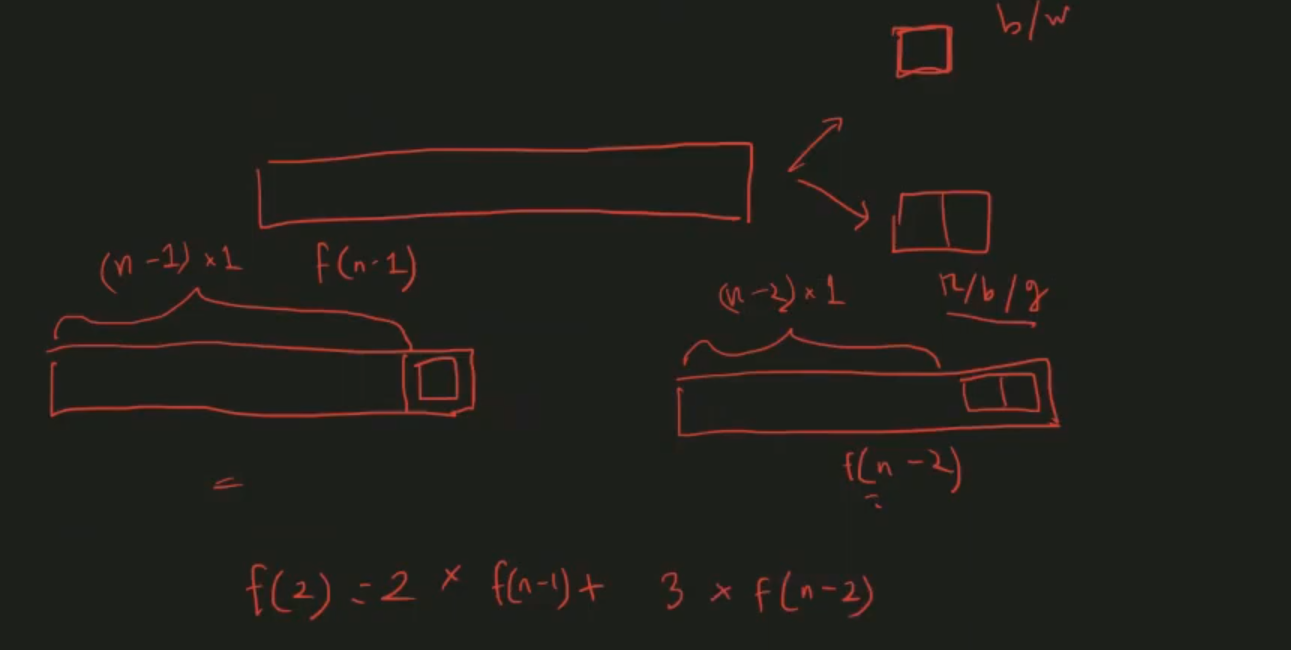 b/w
(n-1)×1 f(n-1)
(n-2)×1 r/b/g
f(n-2)
=
f(2) = 2 × f(n-1) + 3 × f(n-2)